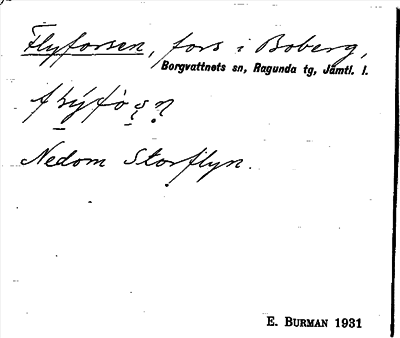 Flyforsen, fors i Boberg,
Borgvattnets sn, Ragunda tg, Jämtl. l.
Nedom Storflyn.
E. BURMAN 1931